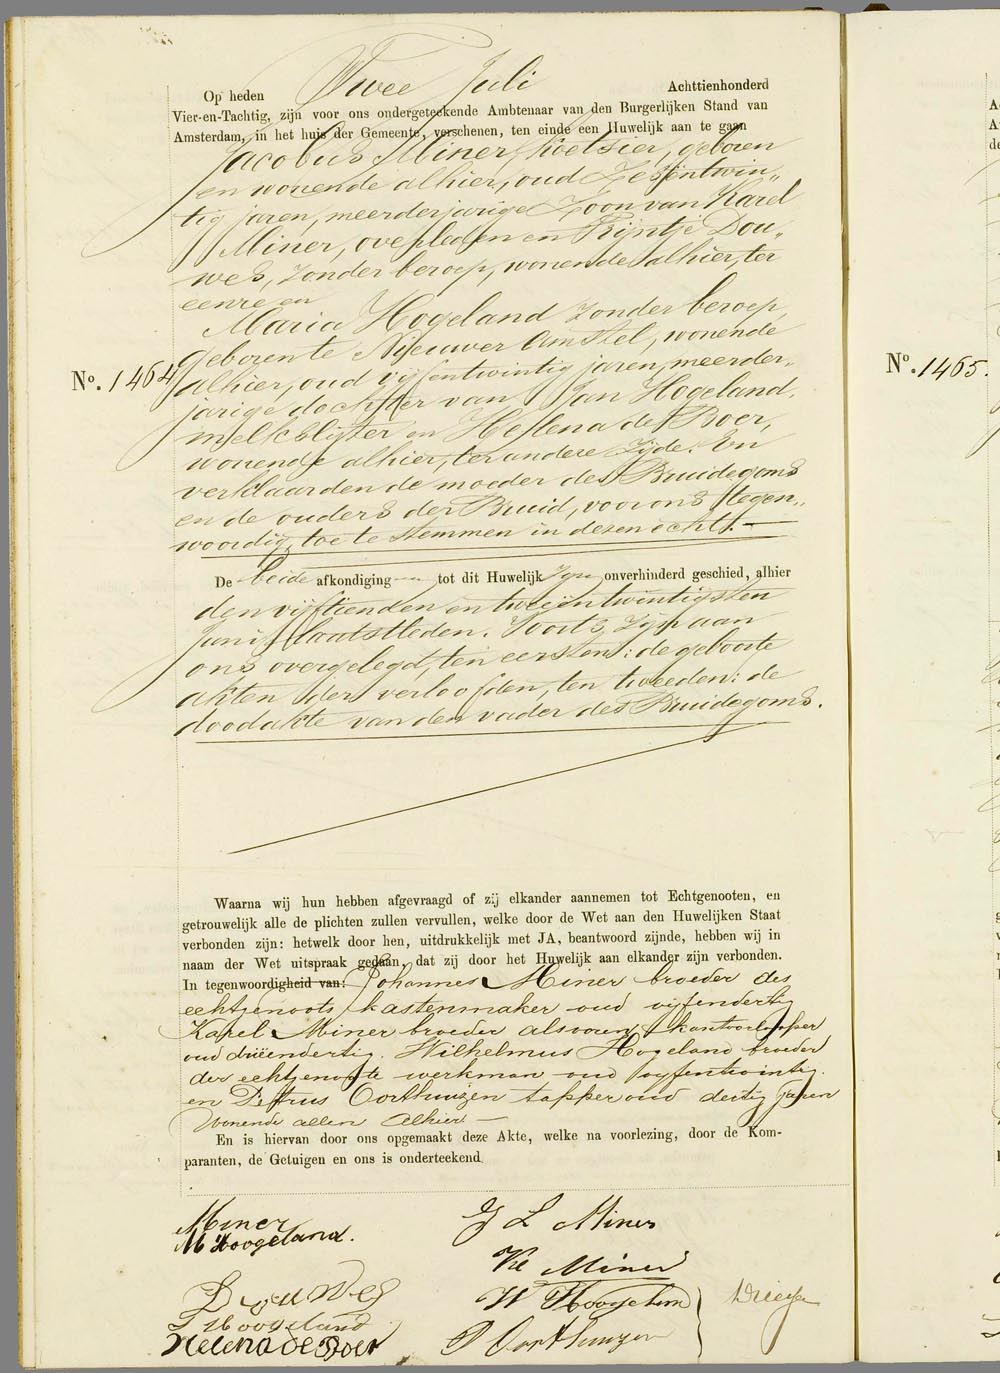 Op heden Twee Juli Achttienhonderd
Vier-en-Tachtig, zijn voor ons ondergeteekende Ambtenaar van den Burgerlijken Stand van
Amsterdam, in het huis der Gemeente, verschenen, ten einde een Huwelijk aan te gaan
Jacobus Miner, Koetsier, geboren
en wonende alhier, oud Zesëntwin„
tig jaren, meerderjarige Zoon van Karel
Miner, overleden en Trijntje Dou„
wes, Zonder beroep, wonende alhier, ter
eenre en
Maria Hogeland Zonder beroep,
geboren te Nieuwer Amstel, wonende
No. 1464 alhier, oud vijfentwintig jaren, meerder„
jarige dochter van Jan Hogeland,
melkslijter en Helena de Boer,
wonende alhier, ter andere Zijde. En
verklaarden de moeder des Bruidegoms
en de ouders der Bruid, voor ons tegen„
woordig, toe te stemmen in dezen echt. —
De beide afkondiging tot dit Huwelijk Zijn onverhinderd geschied, alhier
den vijftienden en tweeëntwintigsten
Juni laatstleden. Voorts Zijn aan
ons overgelegd, ten eersten: de geboorte
akten der verloofden, ten tweeden: de
doodakte van den vader des Bruidegoms.
Waarna wij hun hebben afgevraagd of zij elkander aannemen tot Echtgenooten, en
getrouwelijk alle de plichten zullen vervullen, welke door de Wet aan den Huwelijken Staat
verbonden zijn: hetwelk door hen, uitdrukkelijk met JA, beantwoord zijnde, hebben wij in
naam der Wet uitspraak gedaan, dat zij door het Huwelijk aan elkander zijn verbonden.
In tegenwoordigheid van: Johannes Miner broeder des
echtgenoots kastenmaker oud vijfendertig
Karel Miner broeder alsvoren kantoorlooper
oud drieëndertig. Wilhelmus Hogeland broeder
der echtgenoote werkman oud vijfentwintig.
en Petrus Oorthuizen tapper oud dertig jaren
Wonende allen Alhier —
En is hiervan door ons opgemaakt deze Akte, welke na voorlezing, door de Kom-
paranten, de Getuigen en ons is onderteekend.
Miner
M Hoogeland.
J L Miner
Kl Miner
Douwes
W Hoogeland
J Hoogeland
P Oorthuizen
Helena de Boer
No. 1465.